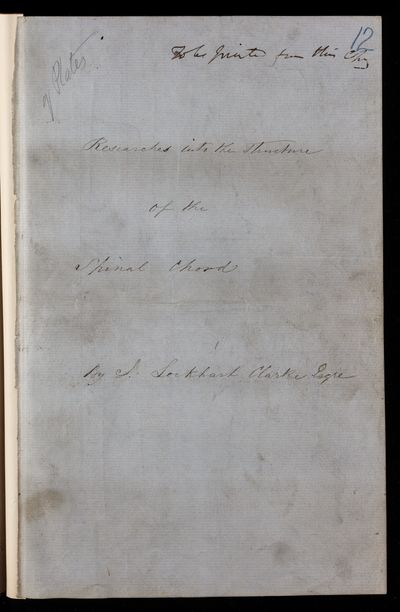 12
To be printed from this Copy
Plates
Researches into the structure
of the
Spinal Chord
by J. Lockhart Clarke Esqre